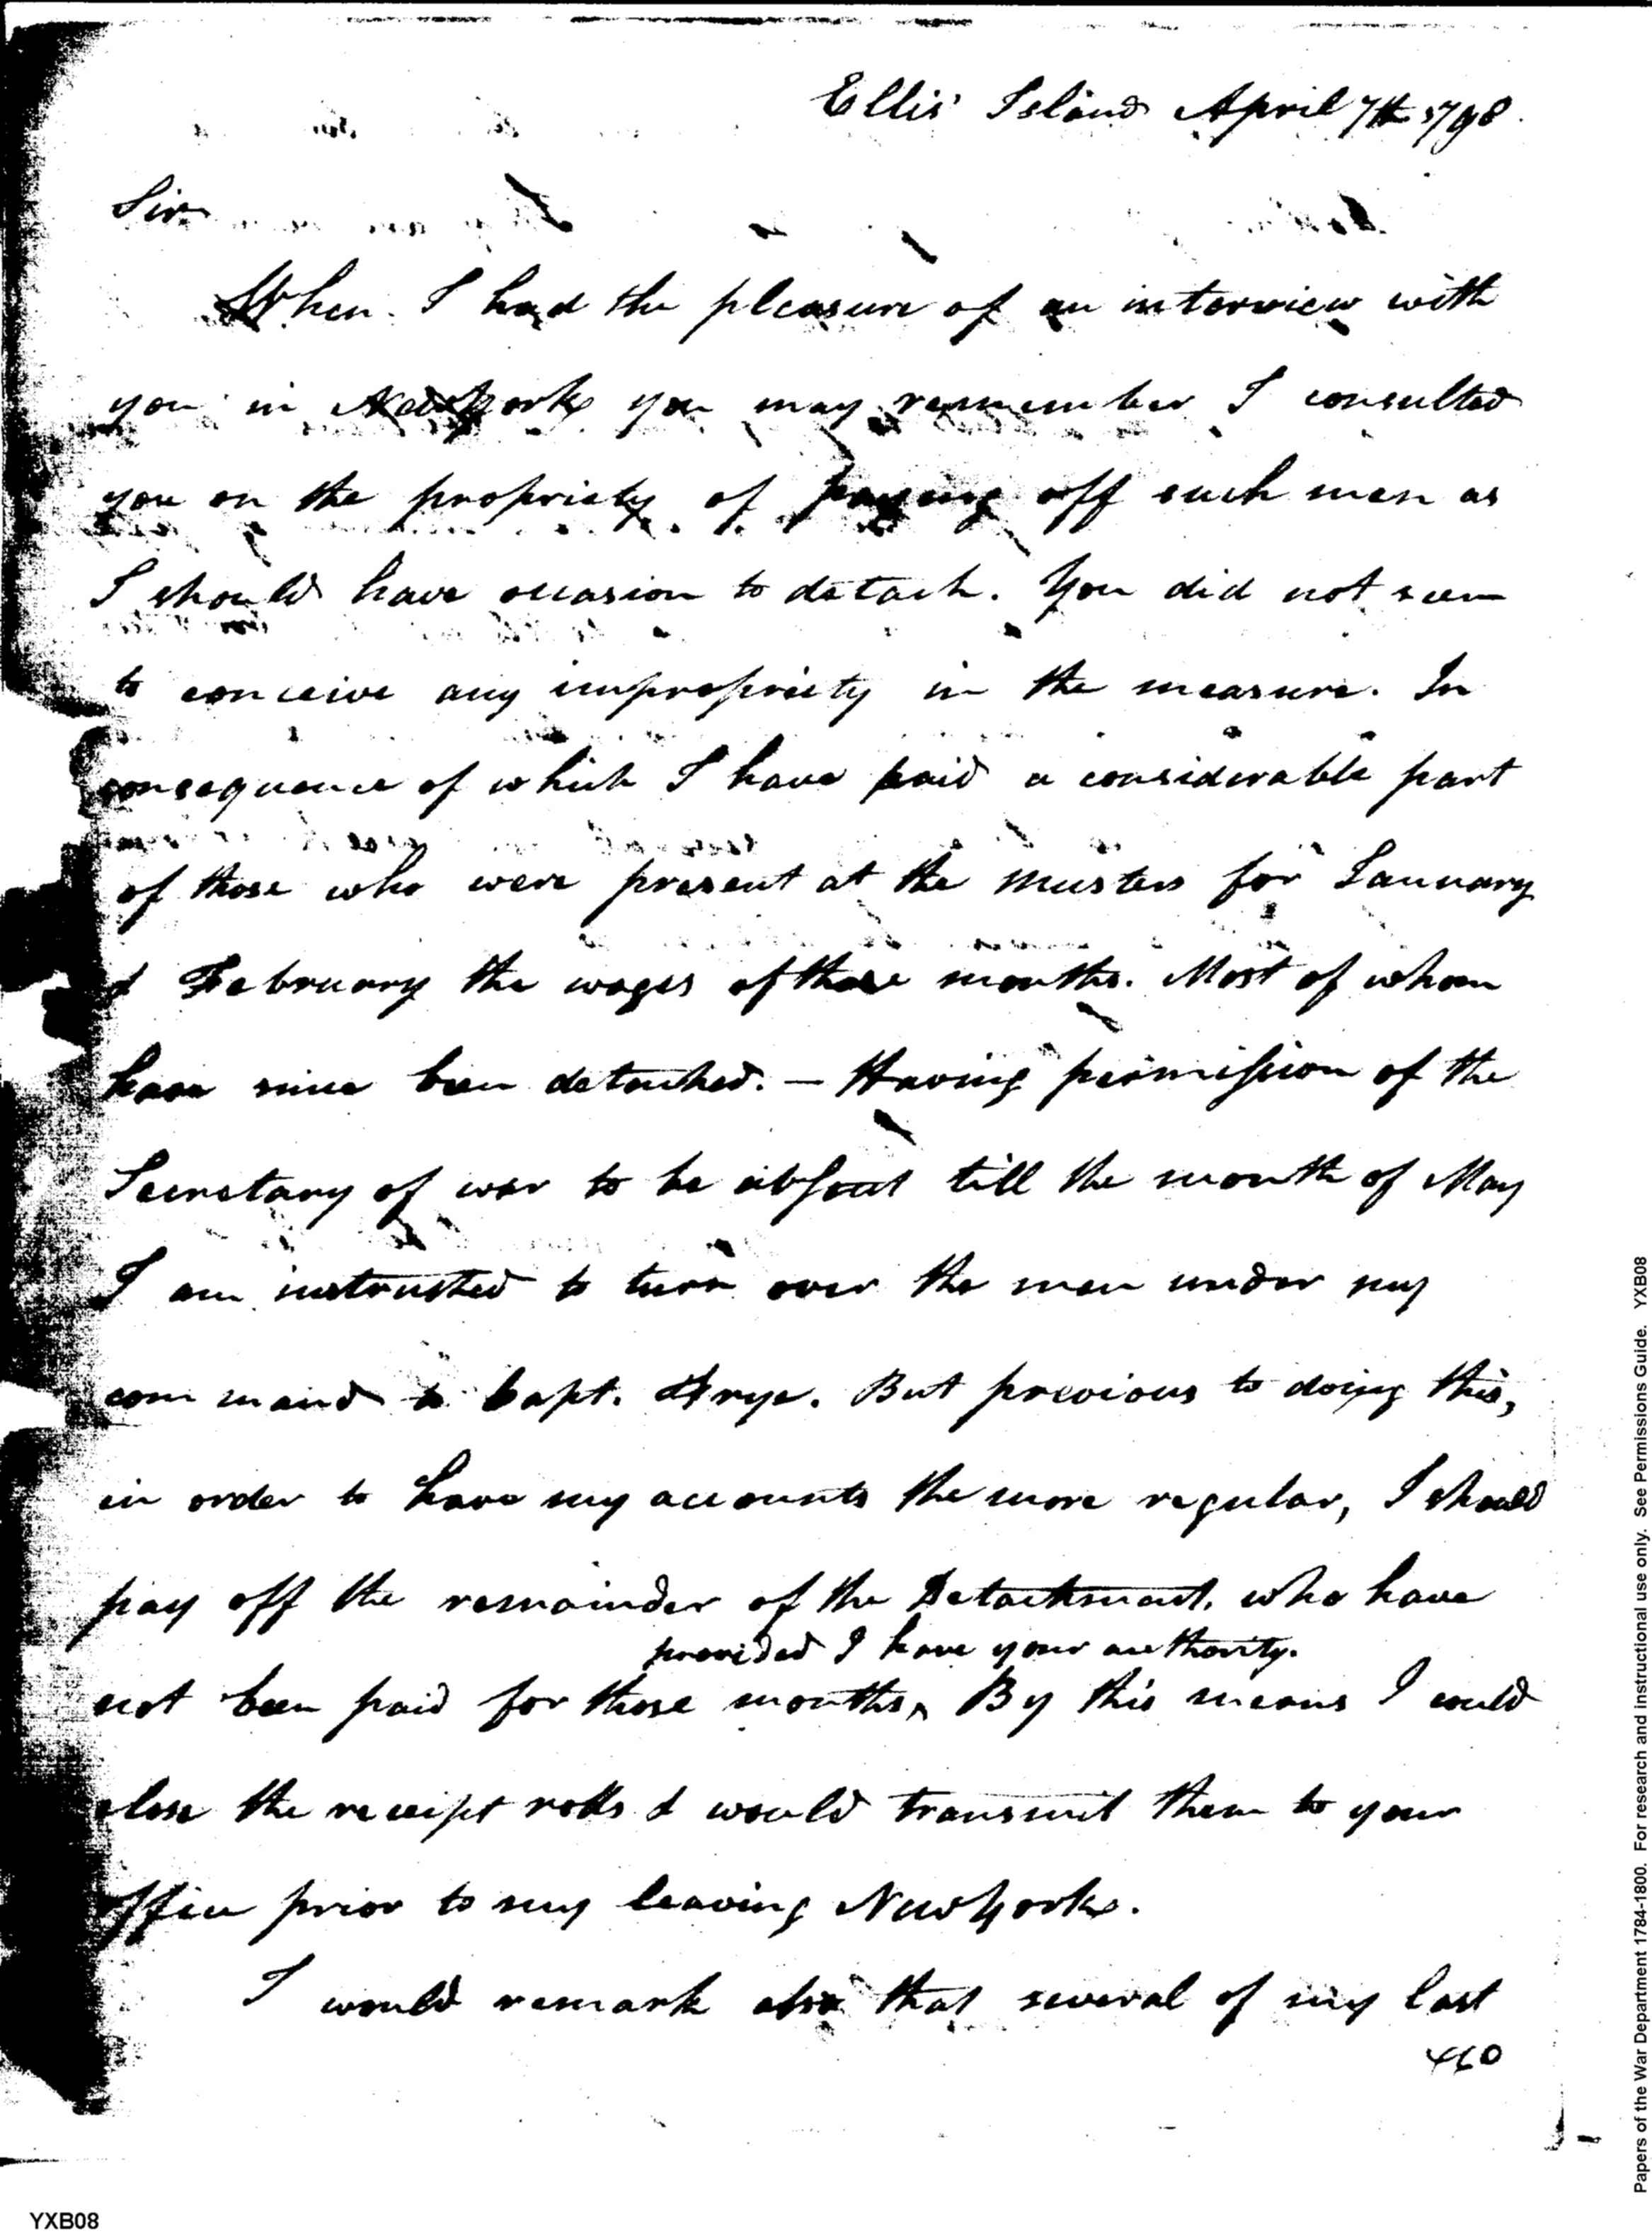 Ellis' Island April 7th 1798.
Sir
When I had the pleasure of an interview with
you in New York you may remember I consulted
you on the propriety of paying off such men as
I should have occasion to detach. You did not seem
to conceive any impropriety in the measure. In
consequence of which I have paid a considerable part
of those who were present at the musters for January
& February the wages of those months. Most of whom
have since been detached. — Having permission of the
Secretary of war to be absent till the month of May
I am instructed to turn over the men under my
command to Capt. Frye. But previous to doing this,
in order to have my accounts the more regular, I should
pay off the remainder of the Detachment. who have
provided I have your authority.
not been paid for those months ‸ By this means I could
close the receipt rolls & would transmit them to your
office prior to my leaving New York.
I would remark also that several of my last
460
YXB08
Papers of the War Department 1784-1800. For research and instructional use only. See Permissions Guide. YXB08